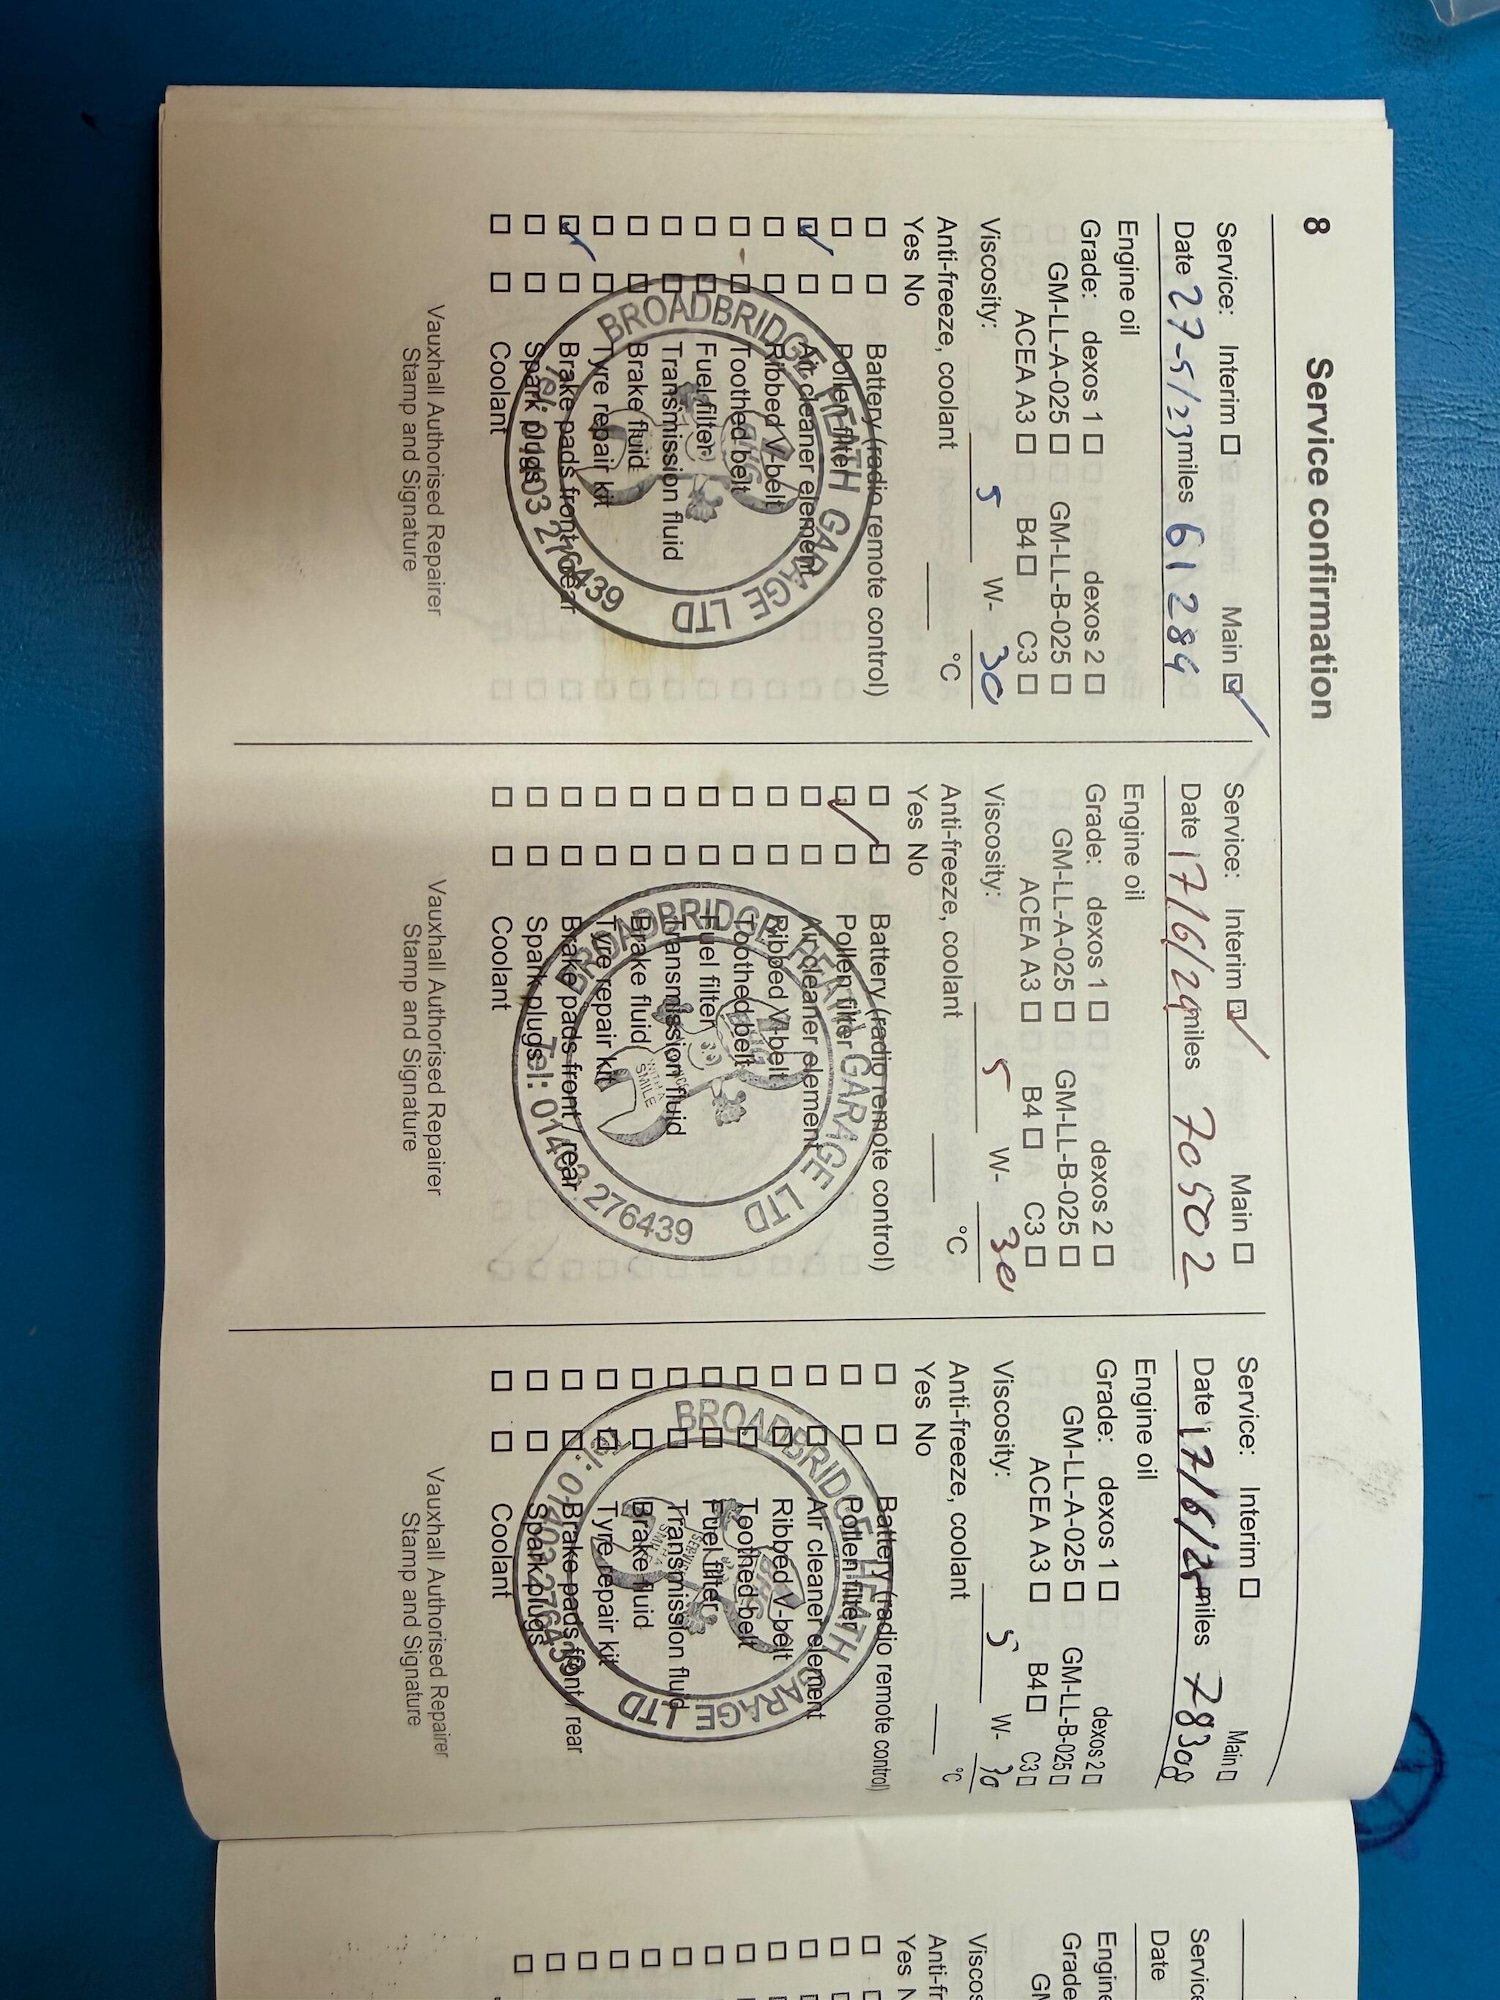 8 Service confirmation
Service: Interim ☐ Main ☑
Date 27-5/23 miles 61284
Engine oil
Grade: dexos 1 ☐ dexos 2 ☐
GM-LL-A-025 ☐ GM-LL-B-025 ☐
ACEA A3 ☐ B4 ☐ C3 ☐
Viscosity: 5 W- 30
Anti-freeze, coolant °C
Yes No
☐ ☐ Battery (radio remote control)
☐ ☐ Pollen filter
☑ ☐ Air cleaner element
☐ ☐ Ribbed V-belt
☐ ☐ Toothed belt
☐ ☐ Fuel filter
☐ ☐ Transmission fluid
☐ ☐ Brake fluid
☐ ☐ Tyre repair kit
☑ ☐ Brake pads front / rear
☐ ☐ Spark plugs
☐ ☐ Coolant
BROADBRIDGE HEATH GARAGE LTD
Tel: 01403 276439
BHG
Vauxhall Authorised Repairer
Stamp and Signature
Service: Interim ☑ Main ☐
Date 17/6/24 miles 70502
Engine oil
Grade: dexos 1 ☐ dexos 2 ☐
GM-LL-A-025 ☐ GM-LL-B-025 ☐
ACEA A3 ☐ B4 ☐ C3 ☐
Viscosity: 5 W- 30
Anti-freeze, coolant °C
Yes No
☐ ☐ Battery (radio remote control)
☑ ☐ Pollen filter
☐ ☐ Air cleaner element
☐ ☐ Ribbed V-belt
☐ ☐ Toothed belt
☐ ☐ Fuel filter
☐ ☐ Transmission fluid
☐ ☐ Brake fluid
☐ ☐ Tyre repair kit
☐ ☐ Brake pads front / rear
☐ ☐ Spark plugs
☐ ☐ Coolant
BROADBRIDGE HEATH GARAGE LTD
Tel: 01403 276439
BHG
WITH A
SMILE
Vauxhall Authorised Repairer
Stamp and Signature
Service: Interim ☐ Main ☐
Date 17/6/25 miles 78308
Engine oil
Grade: dexos 1 ☐ dexos 2 ☐
GM-LL-A-025 ☐ GM-LL-B-025 ☐
ACEA A3 ☐ B4 ☐ C3 ☐
Viscosity: 5 W- 30
Anti-freeze, coolant °C
Yes No
☐ ☐ Battery (radio remote control)
☐ ☐ Pollen filter
☐ ☐ Air cleaner element
☐ ☐ Ribbed V-belt
☐ ☐ Toothed belt
☐ ☐ Fuel filter
☐ ☐ Transmission fluid
☐ ☐ Brake fluid
☐ ☐ Tyre repair kit
☐ ☐ Brake pads front / rear
☐ ☐ Spark plugs
☐ ☐ Coolant
BROADBRIDGE HEATH GARAGE LTD
Tel: 01403 276439
BHG
SERVICE
Vauxhall Authorised Repairer
Stamp and Signature
Service
Date
Engine
Grade
GM
Viscos
Anti-fr
Yes N